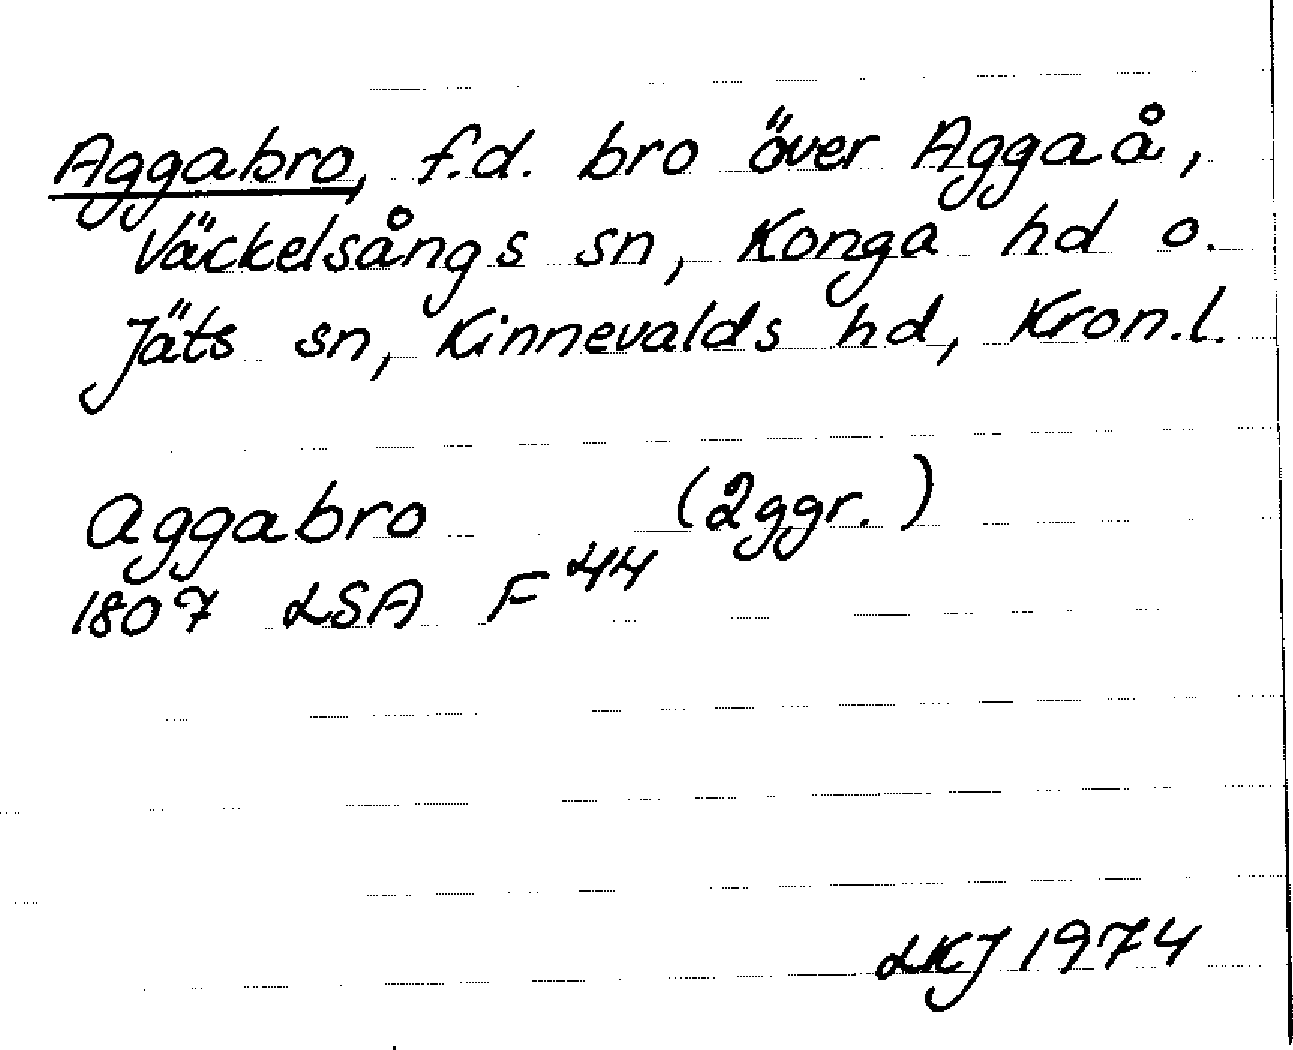 Aggabro, f.d. bro över Aggaå,
Väckelsångs sn, Konga hd o.
Jäts sn, Kinnevalds hd, Kron.l.
Aggabro (2ggr.)
1807 LSA F 44
LKJ 1974